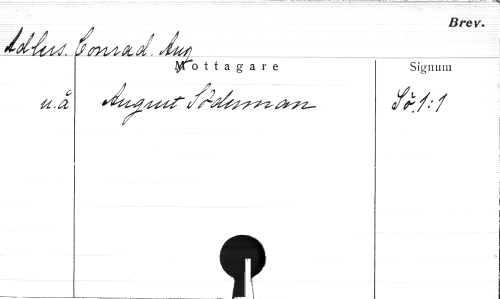 Brev.
Adlers. Conrad. Aug
Mottagare Signum
u.å August Söderman Sö.1:1